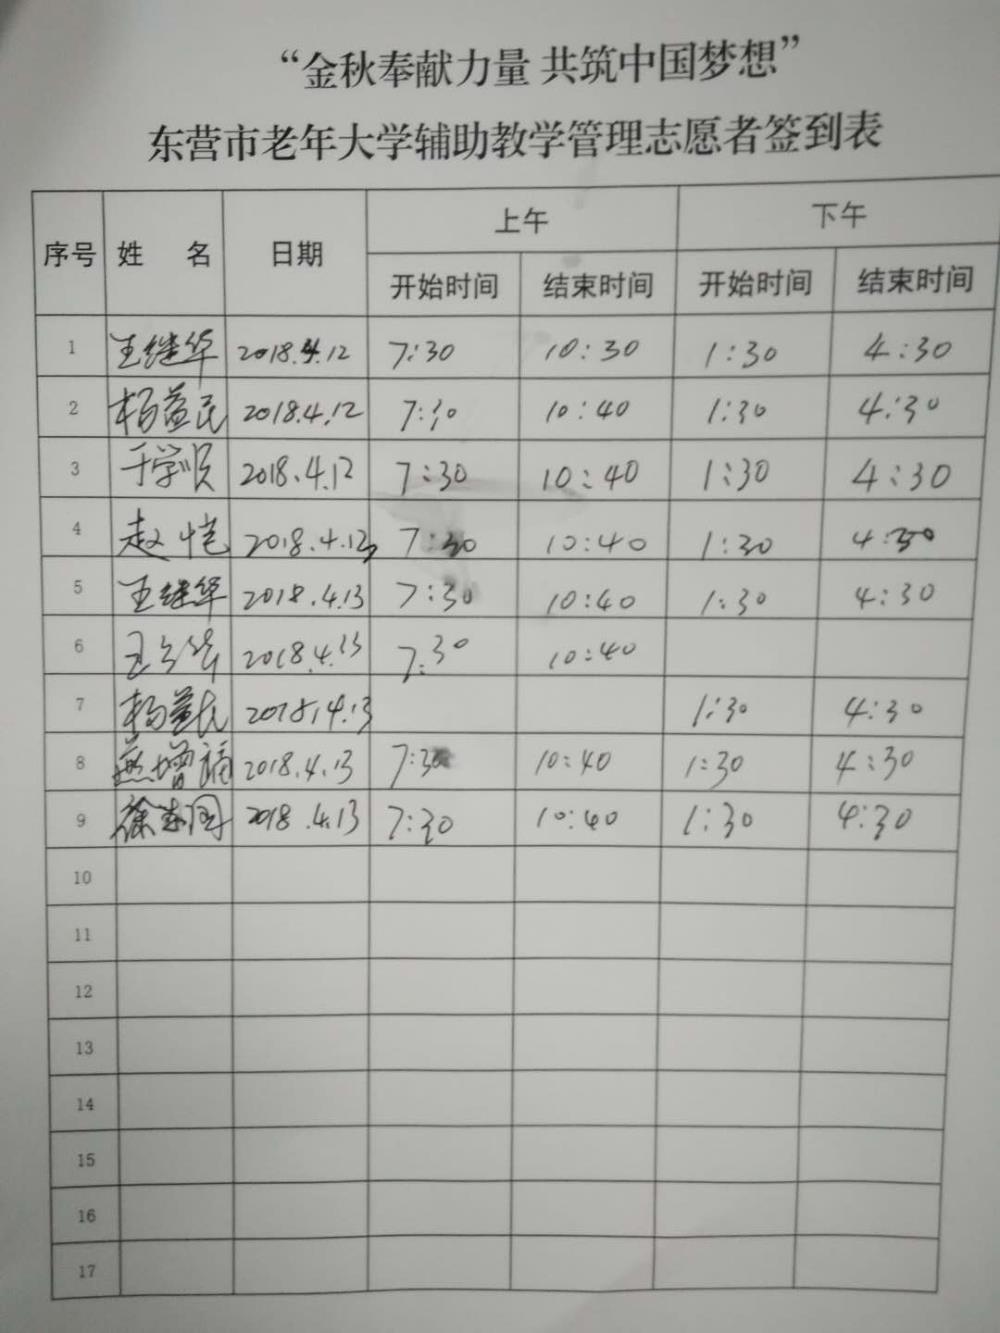 “金秋奉献力量 共筑中国梦想”
东营市老年大学辅助教学管理志愿者签到表
序号 姓 名 日期 上午 下午
开始时间 结束时间 开始时间 结束时间
1 王继华 2018.4.12 7:30 10:30 1:30 4:30
2 杨益民 2018.4.12 7:30 10:40 1:30 4:30
3 于学顺 2018.4.12 7:30 10:40 1:30 4:30
4 赵恺 2018.4.12 7:30 10:40 1:30 4:30
5 王继华 2018.4.13 7:30 10:40 1:30 4:30
6 2018.4.13 7:30 10:40
7 杨益民 2018.4.13 1:30 4:30
8 燕增福 2018.4.13 7:30 10:40 1:30 4:30
9 徐 2018.4.13 7:30 10:40 1:30 4:30
10
11
12
13
14
15
16
17